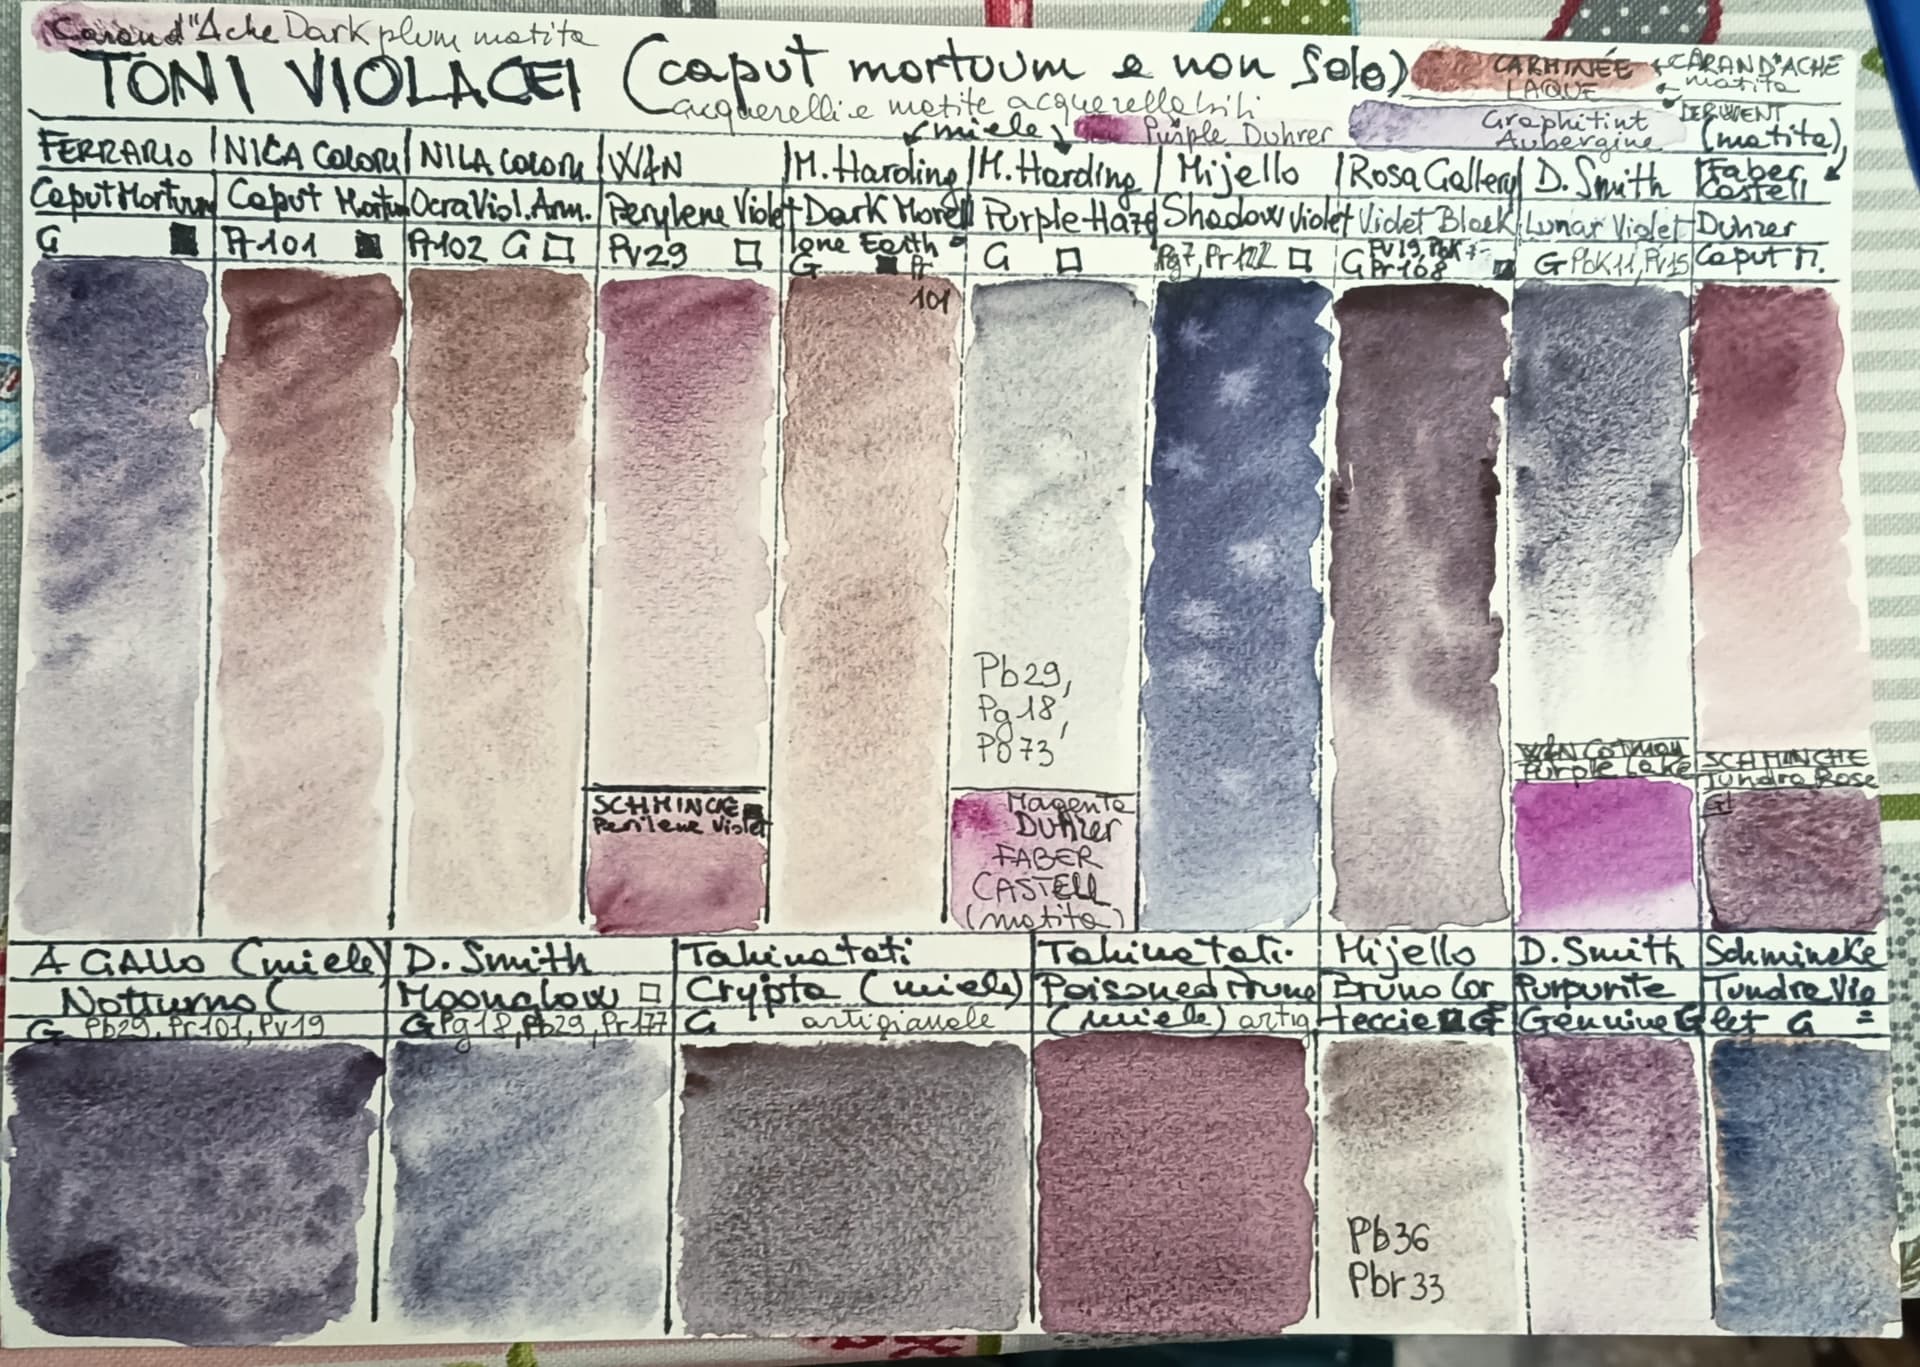 Carand'Ache Dark plum matita
TONI VIOLACEI (caput mortuum e non solo)
acquerelli e matite acquerellabili
CARMINÉE LAQUE
CARAND'ACHE matita
(miele)
Purple Duhrer
Graphitint Aubergine
DERWENT
(matita)
FERRARIO
Caput Mortuum
G
NILA COLORI
Caput Mortum
Pr101
NILA COLORI
Ocra Viol. Am.
Pr102 G
W&N
Perylene Violet
Pv29
M. Harding
Dark Morell
lone Earth
G
Pr
101
M. Harding
Purple Haze
G
Mijello
Shadow Violet
Pg7, Pr122
Rosa Gallery
Violet Black
G Pv19, Pbk7
Pr168
D. Smith
Lunar Violet
G Pbk11, Pv15
Faber Castell
Duhrer
Caput M.
Pb29,
Pg18,
Po73
SCHMINCKE
Perilene Violet
Magenta
Duhrer
FABER
CASTELL
(matita)
W&N Cotman
Purple Lake
SCHMINCHE
Tundra Rose
G
A GALLO (miele)
Notturno
G Pb29, Pr101, Pv19
D. Smith
Moonglow
G Pg18, Pb29, Pr177
Takinatati
Crypta (miele)
G artigianale
Takinatati.
Poisoned Prune
(miele) artig
Mijello
Bruno Cor
teccia G
D. Smith
Purpurite
Genuine G
Schmincke
Tundra Vio
let G
Pb36
Pbr33